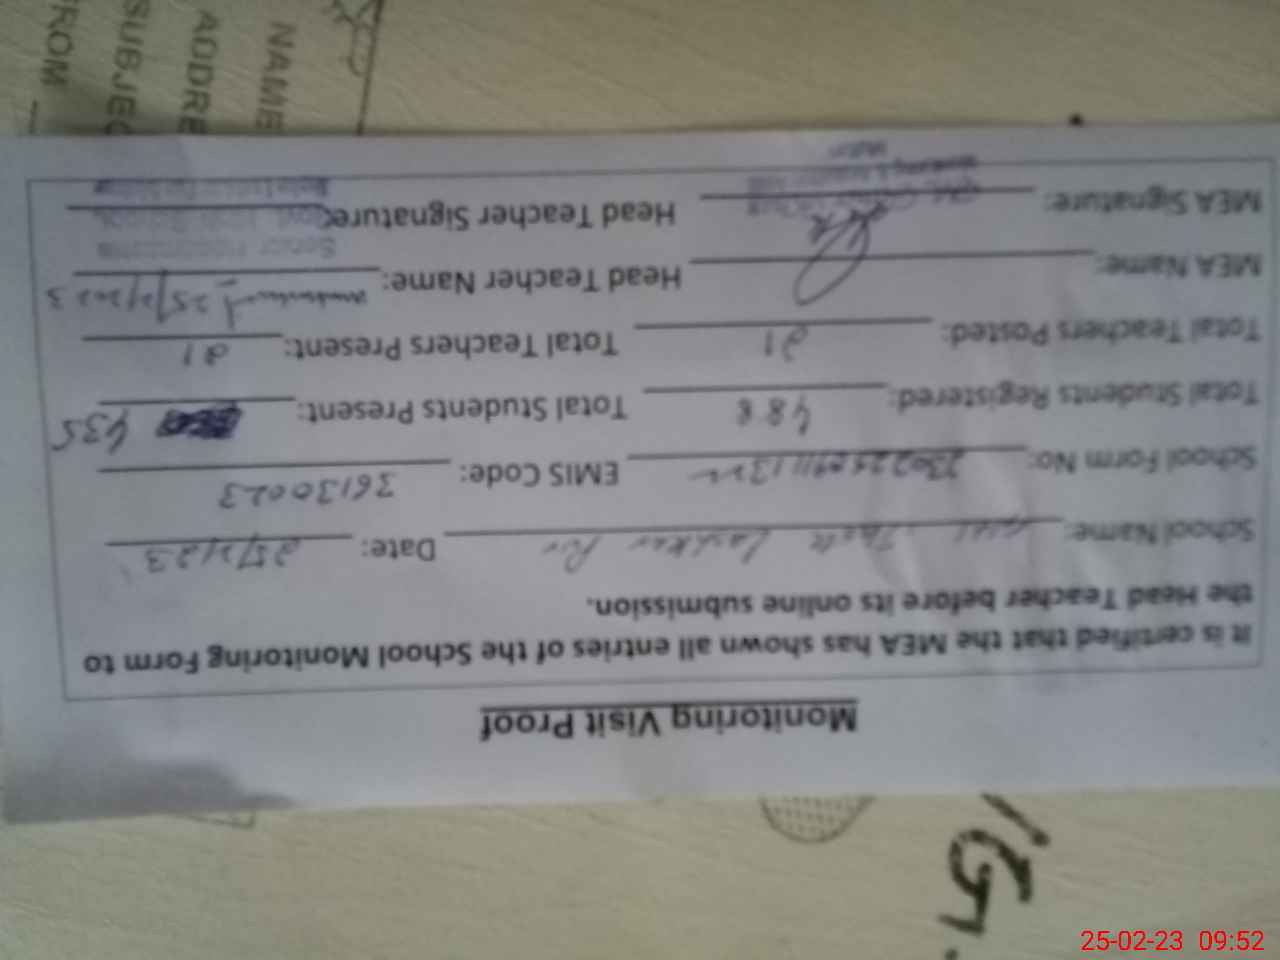 Monitoring Visit Proof
It is certified that the MEA has shown all entries of the School Monitoring Form to
the Head Teacher before its online submission.
School Name: Date: 25/2/23
School Form No: EMIS Code: 36130023
Total Students Registered: 488 Total Students Present: 435
Total Teachers Posted: 21 Total Teachers Present: 21
MEA Name: Head Teacher Name: 25/2/2023
MEA Signature: Head Teacher Signature:
NAME
ADDRE
SUBJEC
FROM
25-02-23 09:52